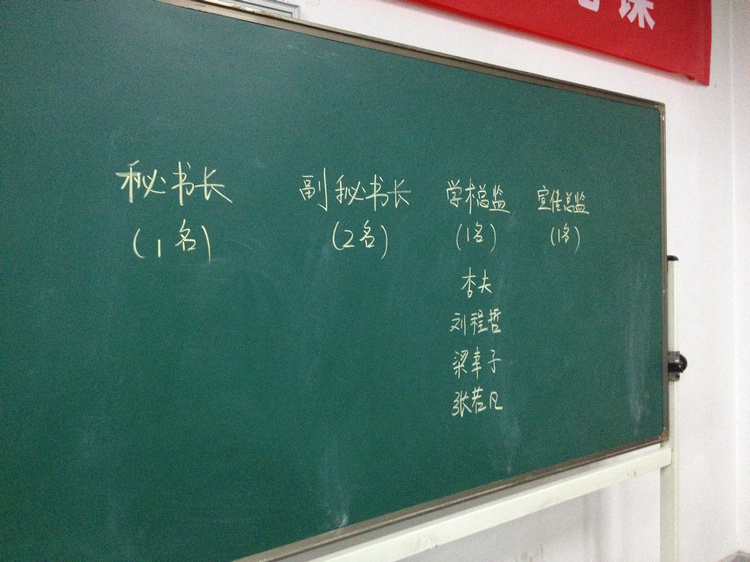 课
秘书长
(1名)
副秘书长
(2名)
学术总监
(1名)
宣传总监
(1名)
李夫
刘程哲
梁幸子
张若凡